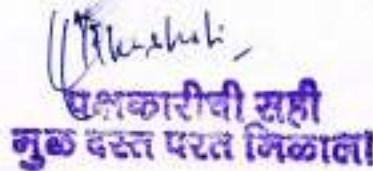 पक्षकारीची सही
मुळ दस्त परत मिळाला